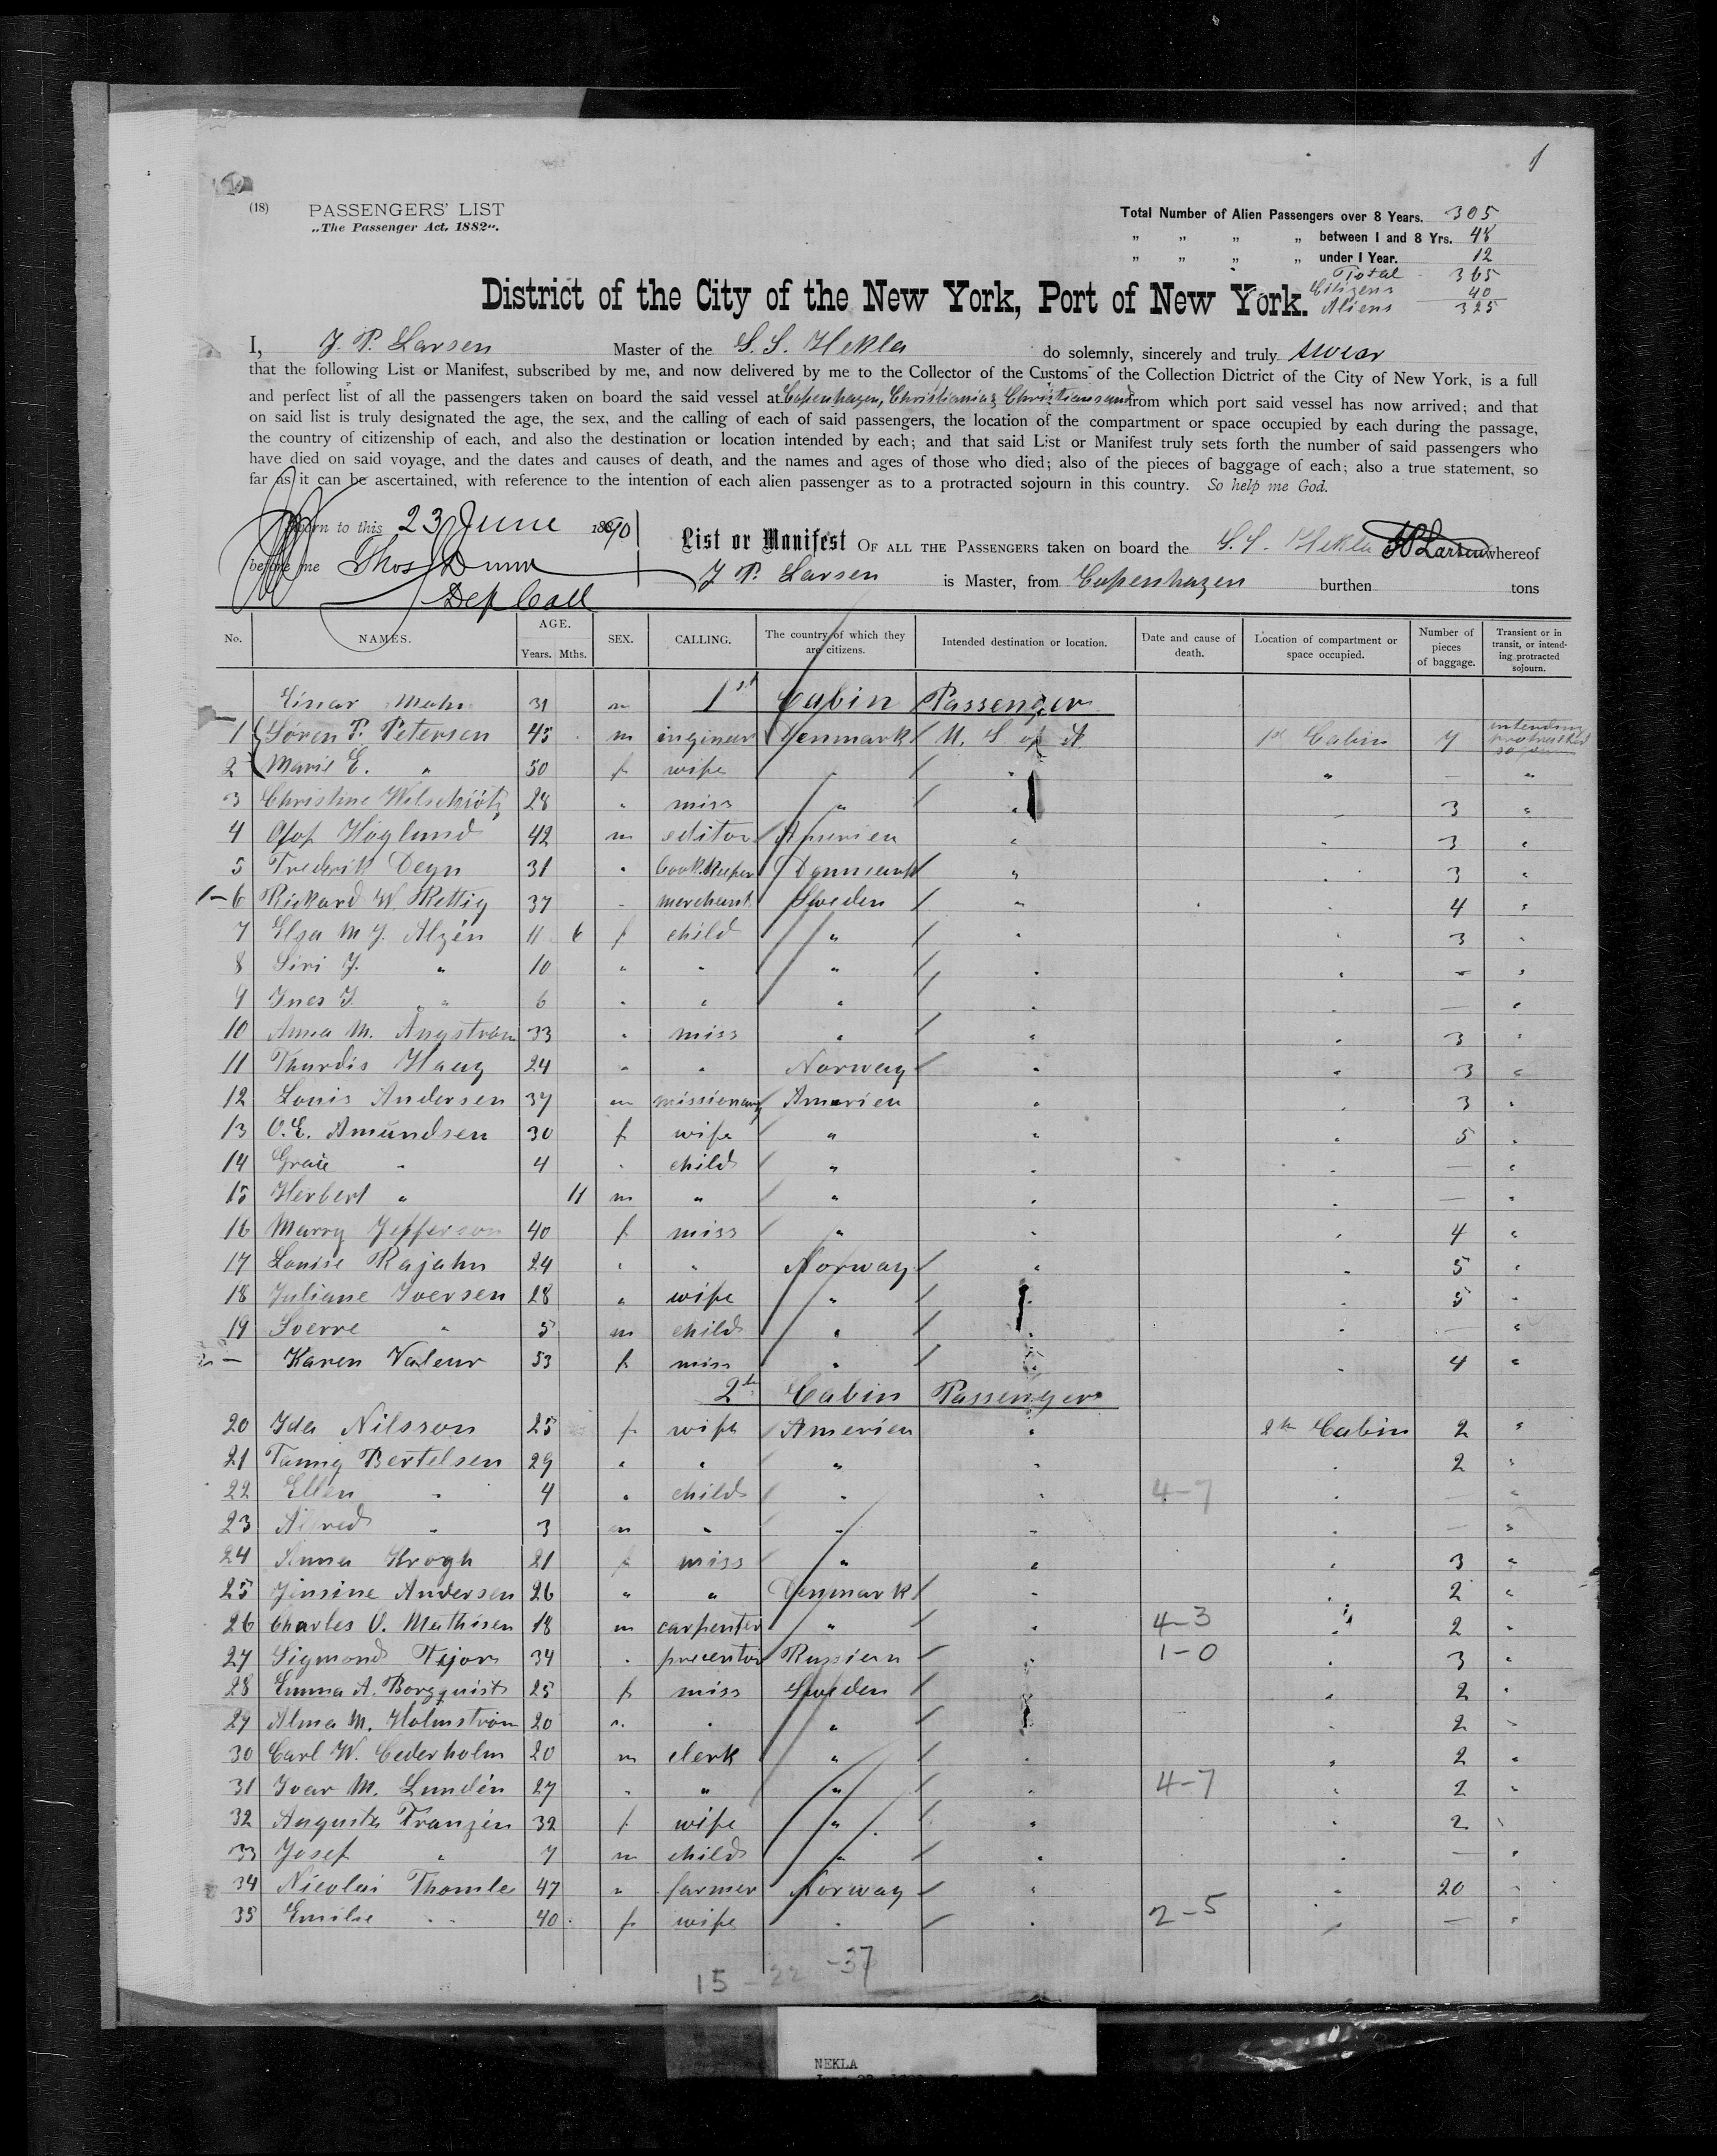 1
(18)
PASSENGERS' LIST
„The Passenger Act, 1882".
Total Number of Alien Passengers over 8 Years. 305
„ „ „ „ between 1 and 8 Yrs. 48
„ „ „ „ under 1 Year. 12
Total 365
Citizens 40
Aliens 325
District of the City of the New York, Port of New York.
I, J. P. Larsen Master of the S. S. Hekla do solemnly, sincerely and truly swear
that the following List or Manifest, subscribed by me, and now delivered by me to the Collector of the Customs of the Collection Dictrict of the City of New York, is a full
and perfect list of all the passengers taken on board the said vessel at Copenhagen, Christiania & Christiansand from which port said vessel has now arrived; and that
on said list is truly designated the age, the sex, and the calling of each of said passengers, the location of the compartment or space occupied by each during the passage,
the country of citizenship of each, and also the destination or location intended by each; and that said List or Manifest truly sets forth the number of said passengers who
have died on said voyage, and the dates and causes of death, and the names and ages of those who died; also of the pieces of baggage of each; also a true statement, so
far as it can be ascertained, with reference to the intention of each alien passenger as to a protracted sojourn in this country. So help me God.
Sworn to this 23 June 1890
before me Thos Dunn
Dep Coll
List or Manifest OF ALL THE PASSENGERS taken on board the S. S. Hekla JPLarsen whereof
J. P. Larsen is Master, from Copenhagen burthen tons
No. NAMES. AGE. Years. Mths. SEX. CALLING. The country of which they are citizens. Intended destination or location. Date and cause of death. Location of compartment or space occupied. Number of pieces of baggage. Transient or in transit, or intending protracted sojourn.
Einar 31 m 1st Cabin Passenger
1 Søren P. Petersen 45 m ingineer Denmark U. S of A 1st Cabin 7 intending protracted sojourn
2 Marie E. " 50 f wife " " " — "
3 Christine 28 " miss " " " 3 "
4 Olof Höglund 42 m editor America " " 3 "
5 Frederik Degn 31 " bookkeeper Danmark " " 3 "
1 – 6 Rickard W. Rettig 37 " merchant Sweden " " 4 "
7 Elsa M J. Alzén 11 6 f child " " " 3 "
8 Siri J. " 10 " " " " " — "
9 Ines I. " 6 " " " " " — "
10 Anna M. Ångström 33 " miss " " " 3 "
11 Thurdis Haug 24 " " Norway " " 3 "
12 Louis Andersen 37 m missionary America " " 3 "
13 O. E. Amundsen 30 f wife " " " 5 "
14 Gracie " 4 " child " " " — "
15 Herbert " 11 m " " " " — "
16 Marry Jefferson 40 f miss " " " 4 "
17 Louise Rajahn 24 " " Norway " " 5 "
18 Juliane Iversen 28 " wife " " " 5 "
19 Sverre " 5 m child " " " — "
— Karen Valeur 53 f miss " " " 4 "
2d Cabin Passengers
20 Ida Nilsson 25 f wife America " 2d Cabin 2 "
21 Fanny Bertelsen 29 " " " " " 2 "
22 Ellen " 4 " child " " 4–7 " — "
23 Alfred " 3 m " " " " — "
24 Anna Krogh 21 f miss " " " 3 "
25 Jensine Andersen 26 " " Denmark " " 2 "
26 Charles O. Mathisen 18 m carpenter " " 4–3 " 2 "
27 Sigmond 34 " precentor Russian " 1–0 " 3 "
28 Emma A. Borgquist 25 f miss Sweden " " 2 "
29 Alma M. Holmström 20 " " " " " 2 "
30 Carl W. Cederholm 20 m clerk " " " 2 "
31 Ivar M. Lundén 27 " " " " 4–7 " 2 "
32 Augusta Franzén 32 f wife " " " 2 "
33 Josef " 7 m child " " " — "
34 Nicolai Thomle 47 " farmer Norway " " 20 "
35 Emilie " 40 f wife " " 2–5 " — "
15 – 22 – 37
NEKLA